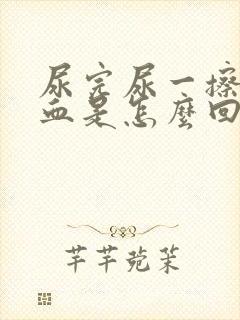 尿完尿一擦
血是怎麼回
芊芊菀茉